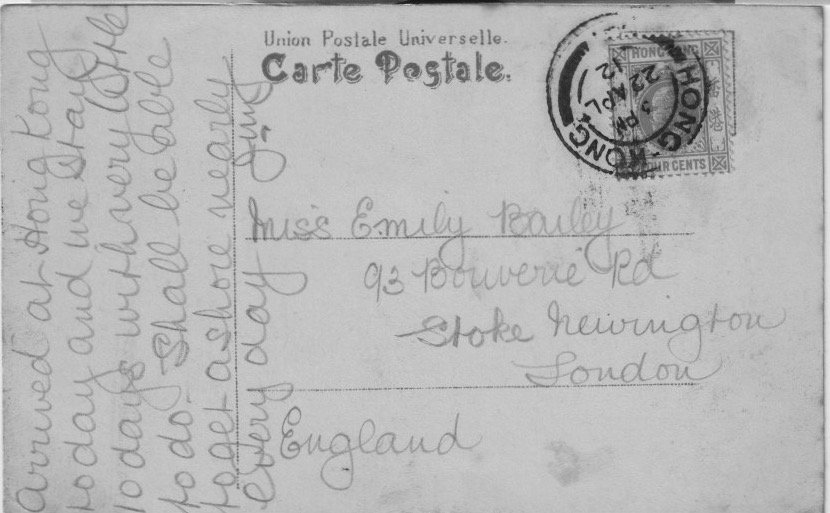 Union Postale Universelle.
Carte Postale.
HONG KONG
FOUR CENTS
HONG-KONG
3 PM
22 AP
12
Miss Emily Bailey
93 Bouverie Rd
Stoke Newington
London
England
Arrived at Hong Kong
today and we stay
10 days with very little
to do. Shall be able
to get ashore nearly
every day Jim